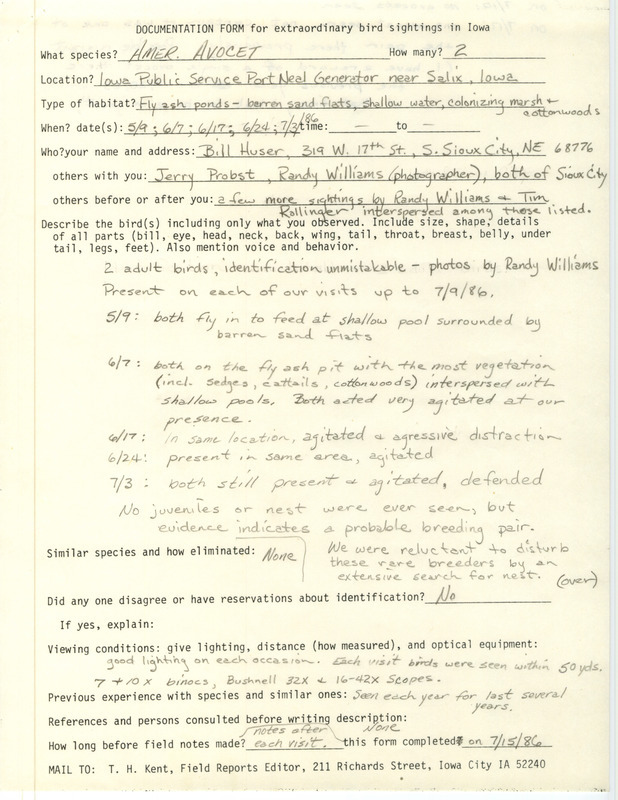 DOCUMENTATION FORM for extraordinary bird sightings in Iowa
What species? AMER. AVOCET How many? 2
Location? Iowa Public Service Port Neal Generator near Salix, Iowa
Type of habitat? Fly ash ponds - barren sand flats, shallow water, colonizing marsh +
cottonwoods
When? date(s): 5/9 ; 6/7 ; 6/17 ; 6/24 ; 7/3/86 time: — to —
Who? your name and address: Bill Huser, 319 W. 17th St., S. Sioux City, NE 68776
others with you: Jerry Probst, Randy Williams (photographer), both of Sioux City
others before or after you: a few more sightings by Randy Williams & Tim
Rollinger interspersed among those listed.
Describe the bird(s) including only what you observed. Include size, shape, details
of all parts (bill, eye, head, neck, back, wing, tail, throat, breast, belly, under
tail, legs, feet). Also mention voice and behavior.
2 adult birds, identification unmistakable - photos by Randy Williams
Present on each of our visits up to 7/9/86.
5/9: both fly in to feed at shallow pool surrounded by
barren sand flats
6/7: both on the fly ash pit with the most vegetation
(incl. sedges, cattails, cottonwoods) interspersed with
shallow pools. Both acted very agitated at our
presence.
6/17: in same location, agitated & agressive distraction
6/24: present in same area, agitated
7/3: both still present & agitated, defended
No juveniles or nest were ever seen, but
evidence indicates a probable breeding pair.
Similar species and how eliminated: None
We were reluctant to disturb
these rare breeders by an
extensive search for nest. (over)
Did any one disagree or have reservations about identification? No
If yes, explain:
Viewing conditions: give lighting, distance (how measured), and optical equipment:
good lighting on each occasion. Each visit birds were seen within 50 yds.
7 + 10 x binocs, Bushnell 32X & 16-42X Scopes.
Previous experience with species and similar ones: Seen each year for last several
years.
References and persons consulted before writing description:
None
How long before field notes made? notes after each visit. this form completed on 7/15/86
MAIL TO: T. H. Kent, Field Reports Editor, 211 Richards Street, Iowa City IA 52240